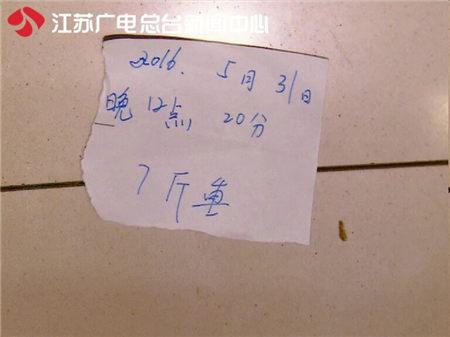 江苏广电总台新闻中心
2016. 5月31日
晚12点 20分
7斤重